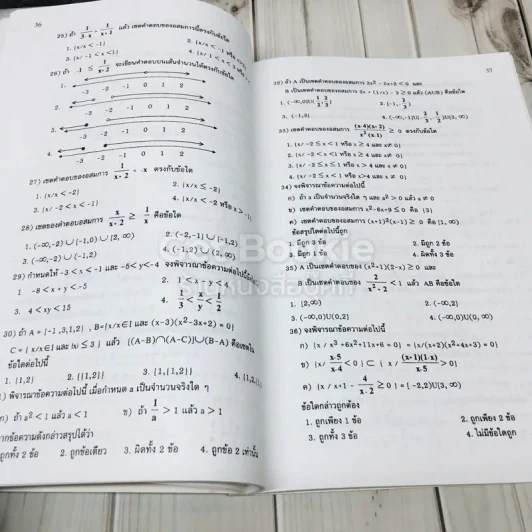 36
25) ถ้า 1/3-x > 1/x+2 แล้ว เซตคำตอบของอสมการนี้ตรงกับข้อใด
1. {x/x < -1}
26) ถ้า -1 ≤ 1/x+2 จะเขียนคำตอบบนเส้นจำนวนได้ตรงกับข้อใด
1. -2 -1 0 1 2
2. -2 -1 0 1 2
3. -2 -1 0 1 2
4. -2 -1 0 1 2
27) เซตคำตอบของอสมการ 1/x+2 < -x ตรงกับข้อใด
1. {x/x < -2} 2. {x/x ≤ -2}
3. {x/ -2 < x < -1} 4. {x/x < -2 หรือ x >
28) เซตของคำตอบอสมการ x/x+2 ≥ 1/x คือข้อใด
1. (-∞,-2)∪[-1,0)∪[2, ∞) 2. (-2,-1)∪[-1,2)
3. (-∞,-2)∪(-1,2) 4. (-1,2)∪(2,∞)
29) กำหนดให้ -3 < x < -1 และ -5 < y < -4 จงพิจารณาข้อความต่อไปนี้
1 -8 < x + y < -5 2. 1 < x-y < 4
3. 4 < xy < 15 4. 1/3 < x/y < 1/2
30) ถ้า A = {-1,3,1,2} , B={x/x∈I และ (x-3)(x²-3x+2) = 0}
C = {x/x∈I และ |x| ≤ 3} แล้ว [(A-B)∩(A-C)]∪(B-A) คือเซตใน
ข้อใดต่อไปนี้
1. {1,2} 2. {{1,2}} 3. {1,{1,2}} 4.
) พิจารณาข้อความต่อไปนี้ เมื่อกำหนด a เป็นจำนวนจริงใด ๆ
ก) ถ้า a² < 1 แล้ว a < 1 ข) ถ้า 1/a > 1 แล้ว a > 1
ากข้อความดังกล่าวสรุปได้ว่า
ถูกทั้ง 2 ข้อ 2. ถูกข้อเดียว 3. ผิดทั้ง 2 ข้อ 4. ถูกข้อ 2 เท่านั้น
37
32) ถ้า A เป็นเซตคำตอบของอสมการ 3x² - 5x+2 < 0 และ
B เป็นเซตคำตอบของอสมการ 2x + (1/x) - 3 ≥ 0 แล้ว (A∪B) คือข้อใด
3. (-1,2]
33) เซตคำตอบของอสมการ (x-4)(x+2)/x²(x-1) ≥ 0 ตรงกับข้อใด
1. {x/ -2 ≤ x < 1 หรือ x ≥ 4 และ x ≠ 0}
2. {x/ -2 < x < 1 หรือ x ≥ 4 และ x ≠ 0}
3. {x/ -2 ≤ x ≤ 1 หรือ x > 4 และ x ≠ 0}
4. {x/ -2 ≤ x < 1 หรือ x > 4 และ x ≠ 0}
34) จงพิจารณาข้อความต่อไปนี้
ก) ถ้า x เป็นจำนวนจริงใด ๆ และ x² > 0 แล้ว x ≠ 0
ข) เซตคำตอบของอสมการ x²-6x+9 ≤ 0 คือ {3}
ค) เซตคำตอบของอสมการ (x+1)²(x-1) ≥ 0 คือ [1, ∞)
ข้อสรุปใดต่อไปนี้ถูก
1. มีถูก 3 ข้อ 2. มีถูก 2 ข้อ
3. มีถูก 1 ข้อ 4. ผิดทั้ง 3 ข้อ
35) A เป็นเซตคำตอบของ (x²+1)(2-x) ≥ 0 และ
B เป็นเซตคำตอบของ 2/x²-2 < 1 แล้ว AB คือข้อใด
1. [2,∞) 2. (-∞,2]
3. (-∞,0)∪(0,2] 4. (-∞,0)∪(0, ∞)
36) จงพิจารณาข้อความต่อไปนี้
ก) {x / x³ +6x²+11x+6 = 0} = {x/(x+2)(x²+4x+3) = 0}
ข) {x/ x-5/x-4 < 0} ⊂ {x/ (x+1)(1-x)/x-5 > 0}
ค) {x / x+1 - 4/x-2 ≥ 0} = [-2,2)∪[3,∞)
ข้อใดกล่าวถูกต้อง
1. ถูกเพียง 1 ข้อ 2. ถูกเพียง 2 ข้อ
3. ถูกทั้ง 3 ข้อ 4. ไม่มีข้อใดถูก